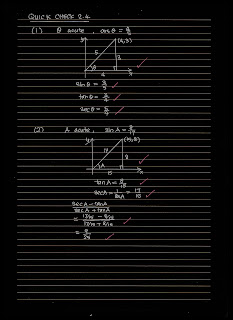 QUICK CHECK 2.4
(1) θ acute, cos θ = 4/5
y (4,3)
5 3
θ
4 x
sin θ = 3/5
tan θ = 3/4
sec θ = 5/4
(2) A acute, sin A = 8/17
y (15,8)
17 8
A
15 x
tan A = 8/15
sec A = 1/cos A = 17/15
sec A - tan A / sec A + tan A
= 17/15 - 8/15 / 17/15 + 8/15
= 9/25